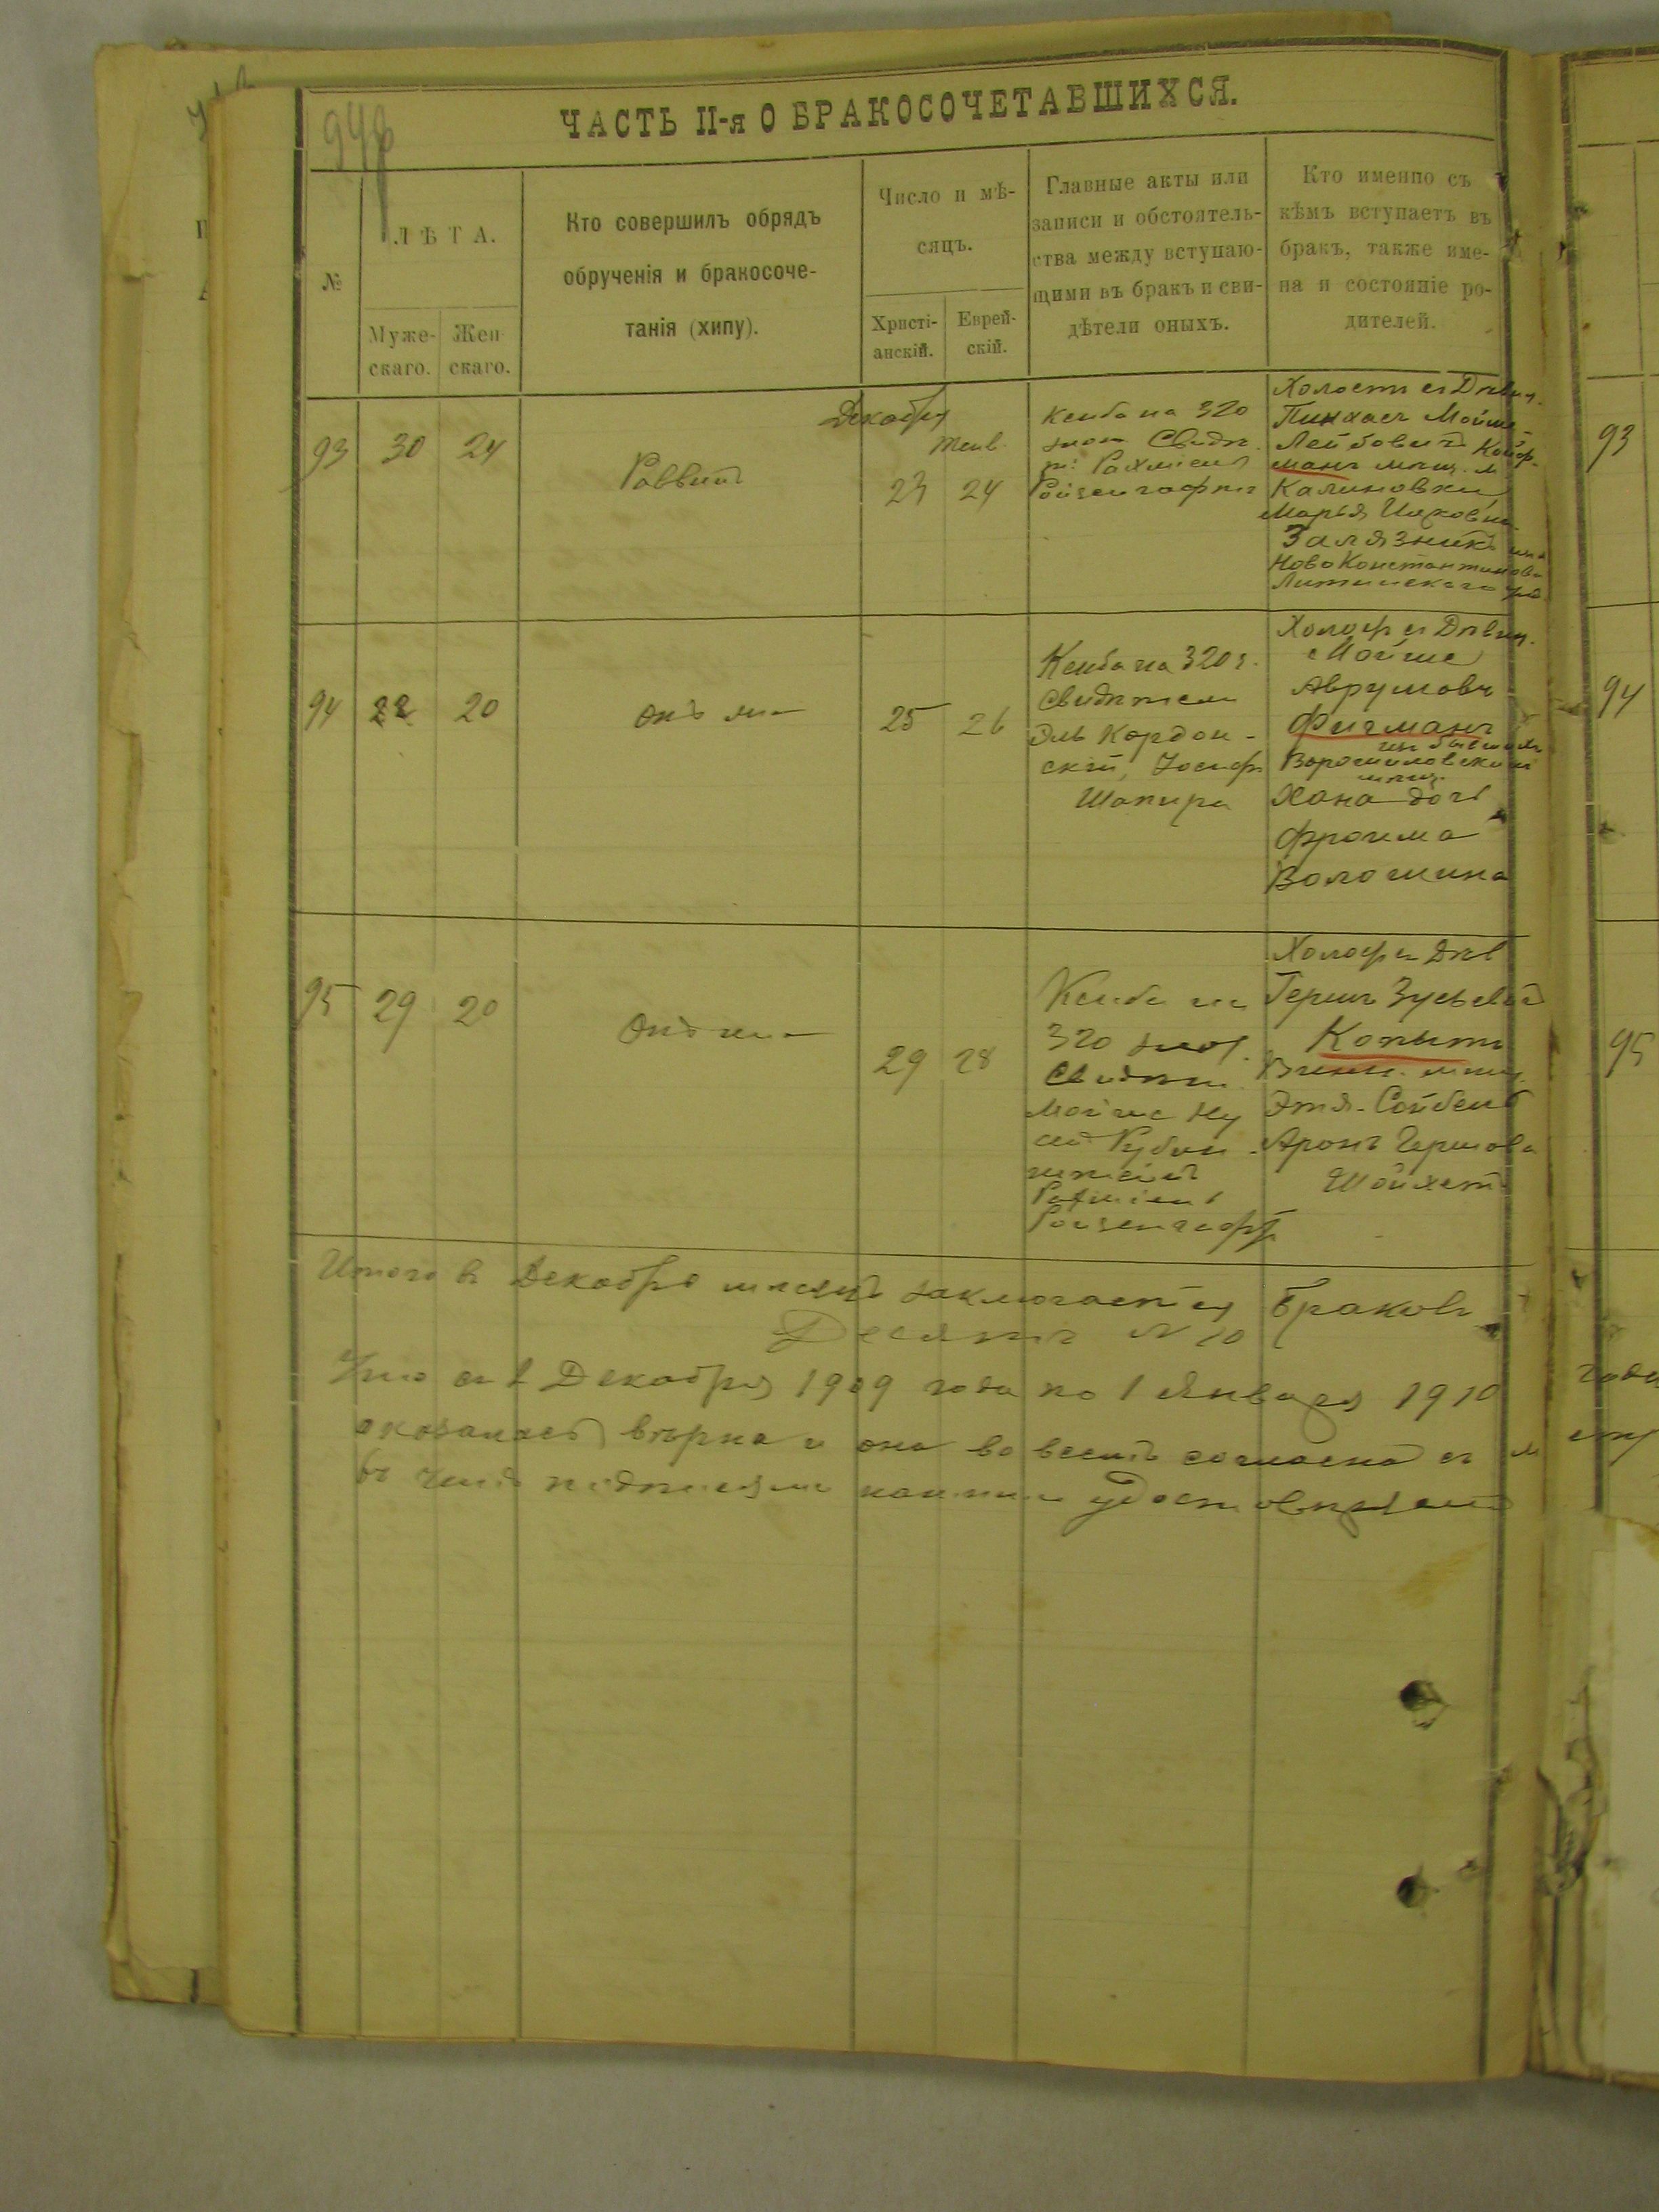 948
ЧАСТЬ II-я О БРАКОСОЧЕТАВШИХСЯ.
№
ЛѢТА.
Муже-
скаго.
Жен
скаго.
Кто совершилъ обрядъ
обрученія и бракосоче-
танія (хипу).
Число и мѣ-
сяцъ.
Христі-
анскій.
Еврей-
скій.
Главные акты или
записи и обстоятель-
ства между вступаю-
щими въ бракъ и сви-
дѣтели оныхъ.
Кто именно съ
кѣмъ вступаетъ въ
бракъ, также име-
на и состояніе ро-
дителей.
93
30
24
Раввинъ
Декабря
23
24
Кенба на 320
злот. Свидѣ
Рахміель
Ройзенграфтъ
Холостъ съ Дѣвиц.
Пинхасъ Мойше
Лейбовичъ Койф-
манъ мѣщ. м
Калиновки
Марья Ицковна
Залязникъ
Ново Константинов
Литинскаго
94
22
20
онъ же
25
26
Кенба на 320 з.
Свидѣтели
Эль Кордон-
скій, Іосифъ
Шапира
Холост съ Дѣвиц.
Мойше
Аврумовъ
Фигманъ
Ворошиловскій
мѣщ.
Хана дочь
Фроима
Волошина
95
29
20
Онъ же
29
28
Кенба на
320 злот.
Свидѣтел
Мойше Ну
Рубин
штейнъ
Рахміель
Ройзенграфтъ
Холост съ Дѣв
Гершъ Зусьевъ
Копытъ
Винн. мѣщ.
Этя-Сойбель
Аронъ Гершова
Шойхетъ
Итого въ Декабрѣ мѣсяцѣ заключается браковъ
Десять № 10
Что съ 1 Декабря 1909 года по 1 Января 1910
оказалась вѣрна и она во всемъ согласна съ м
въ чемъ подписями нашими удостовѣряемъ
93
94
95